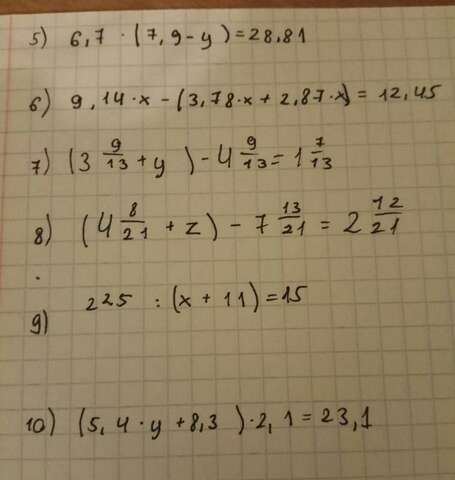 5) 6,7 · (7,9 - y) = 28,81
6) 9,14 · x - (3,78 · x + 2,87 · x) = 12,45
7) (3 9/13 + y) - 4 9/13 = 1 7/13
8) (4 8/21 + z) - 7 13/21 = 2 12/21
9) 225 : (x + 11) = 15
10) (5,4 · y + 8,3) · 2,1 = 23,1